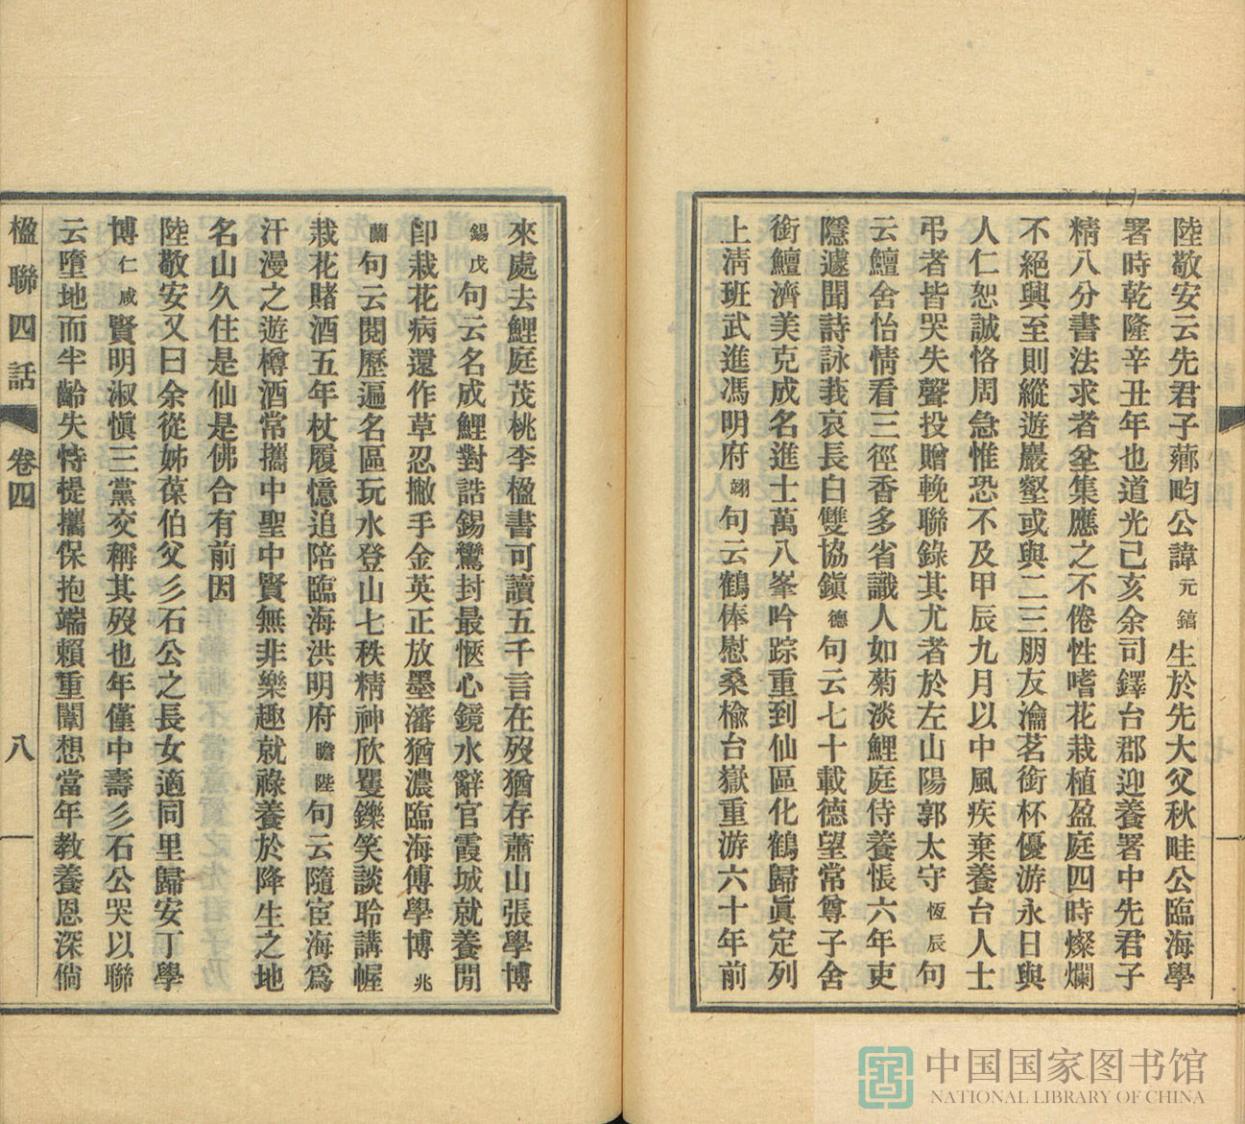 陸敬安云先君子薌畇公諱元鎬生於先大父秋畦公臨海學
署時乾隆辛丑年也道光己亥余司鐸台郡迎養署中先君子
精八分書法求者坌集應之不倦性嗜花栽植盈庭四時燦爛
不絕興至則縱遊巖壑或與二三朋友瀹茗銜杯優游永日與
人仁恕誠恪周急惟恐不及甲辰九月以中風疾棄養台人士
弔者皆哭失聲投贈輓聯錄其尤者於左山陽郭太守恆辰句
云鱣舍怡情看三徑香多省識人如菊淡鯉庭侍養悵六年吏
隱遽聞詩詠莪哀長白雙協鎮德句云七十載德望常尊子舍
銜鱣濟美克成名進士萬八峯吟踪重到仙區化鶴歸眞定列
上淸班武進馮明府翊句云鶴俸慰桑楡台嶽重游六十年前
來處去鯉庭茂桃李楹書可讀五千言在歿猶存蕭山張學博
錫戊句云名成鯉對誥錫鸞封最愜心鏡水辭官霞城就養閒
卽栽花病還作草忍撇手金英正放墨瀋猶濃臨海傅學博兆
蘭句云閱歷遍名區玩水登山七秩精神欣矍鑠笑談聆講幄
栽花賭酒五年杖履憶追陪臨海洪明府瞻陛句云隨宦海爲
汗漫之遊樽酒常攜中聖中賢無非樂趣就祿養於降生之地
名山久住是仙是佛合有前因
陸敬安又曰余從姊葆伯父彡石公之長女適同里歸安丁學
博仁咸賢明淑愼三黨交稱其歿也年僅中壽彡石公哭以聯
云墮地而半齡失恃提攜保抱端賴重闈想當年教養恩深倘
楹聯四話 卷四 八
中国国家图书馆
NATIONAL LIBRARY OF CHINA